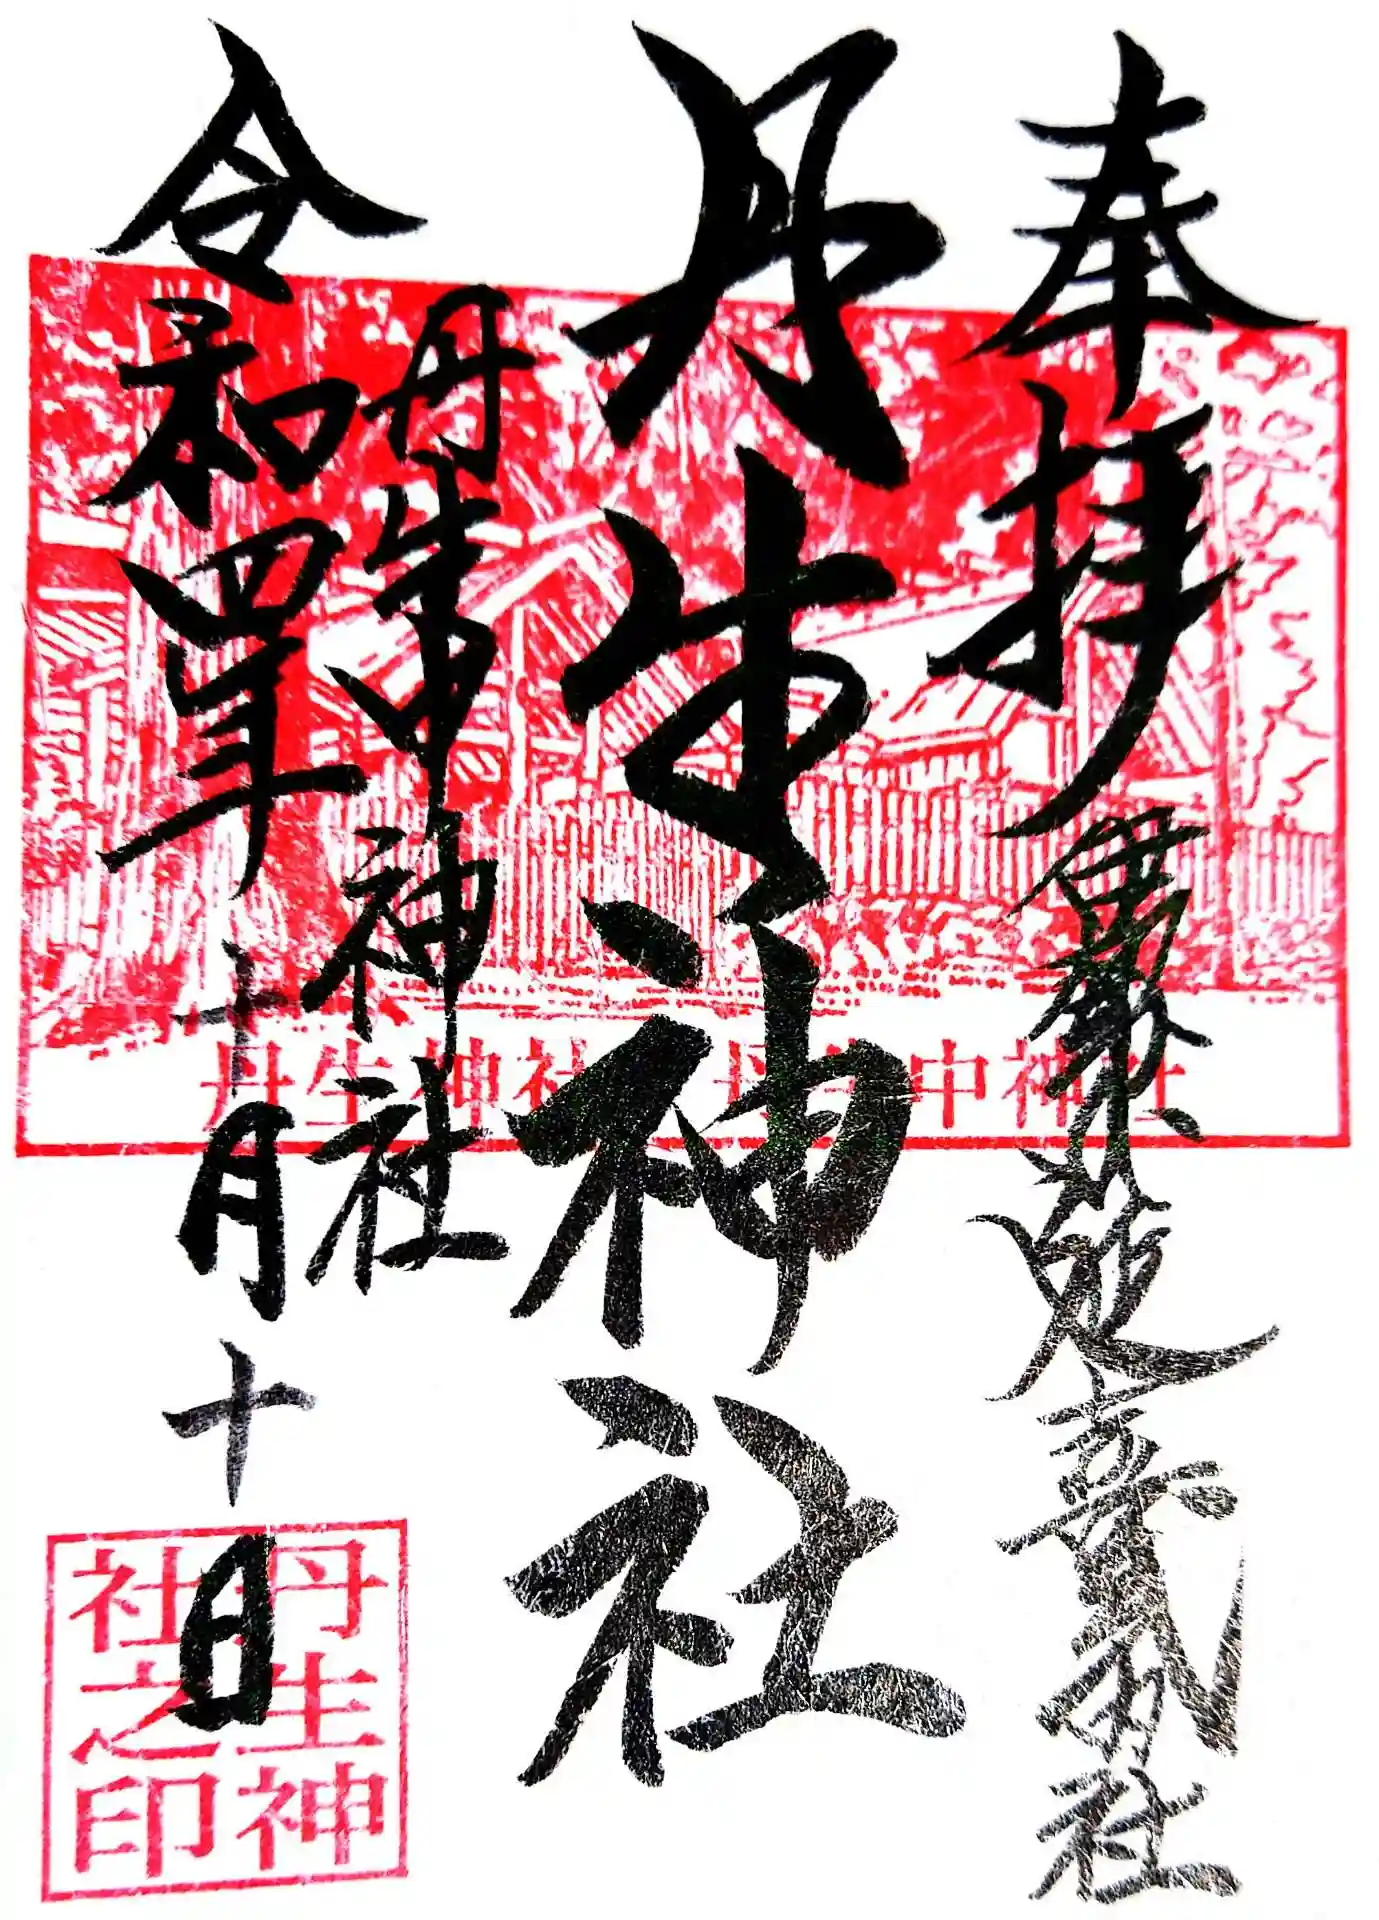 奉拝 延喜式内社
丹生神社
丹生中神社
令和四年十月十日
丹生神社 丹生中神社
丹生神
社之印